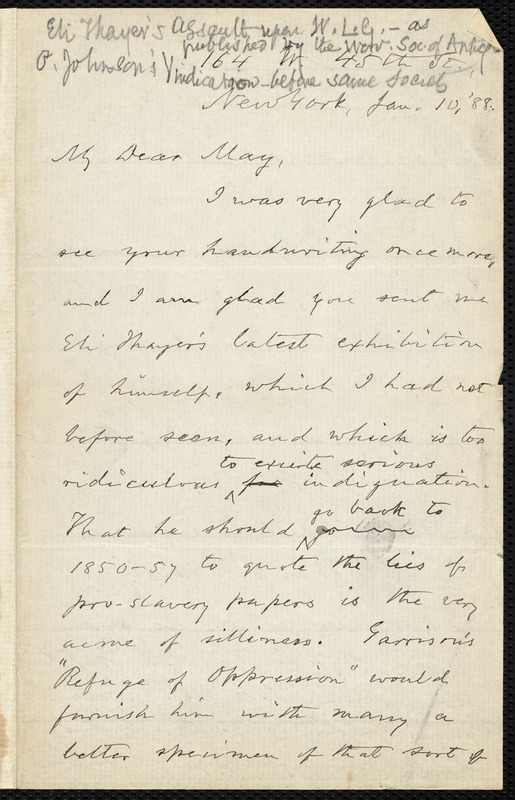 Eli Thayer's Assault upon W.L.G. - as
published by the Wor. Soc. of Antiq.
O. Johnson's Vindication before same Society
164 W. 45th St.,
New York, Jan. 10, '88.
My Dear May,
I was very glad to
see your handwriting once more,
and I am glad you sent me
Eli Thayer's latest exhibition
of himself, which I had not
before seen, and which is too
to excite serious
ridiculous for indignation.
go back to
That he should
1850-57 to quote the lies of
pro-slavery papers is the very
acme of silliness. Garrison's
"Refuge of Oppression" would
furnish him with many a
better specimen of that sort of